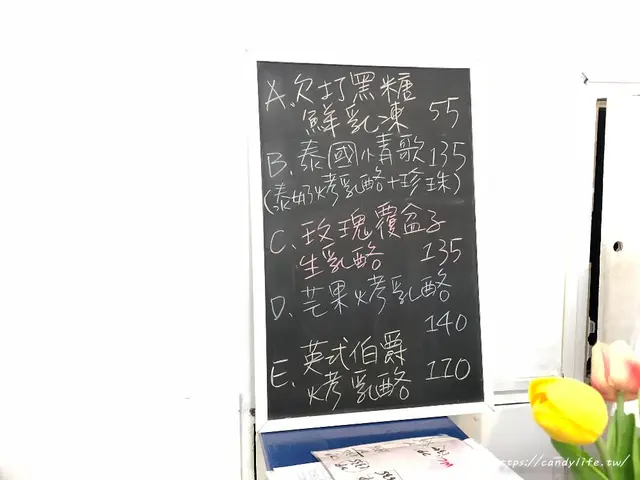 A. 欠打黑糖
鮮乳凍 55
B. 泰國小情歌 135
(泰奶烤乳酪+珍珠)
C. 玫瑰覆盆子
生乳酪 135
D. 芒果烤乳酪
140
E. 英式伯爵
烤乳酪 110
https://candylife.tw/